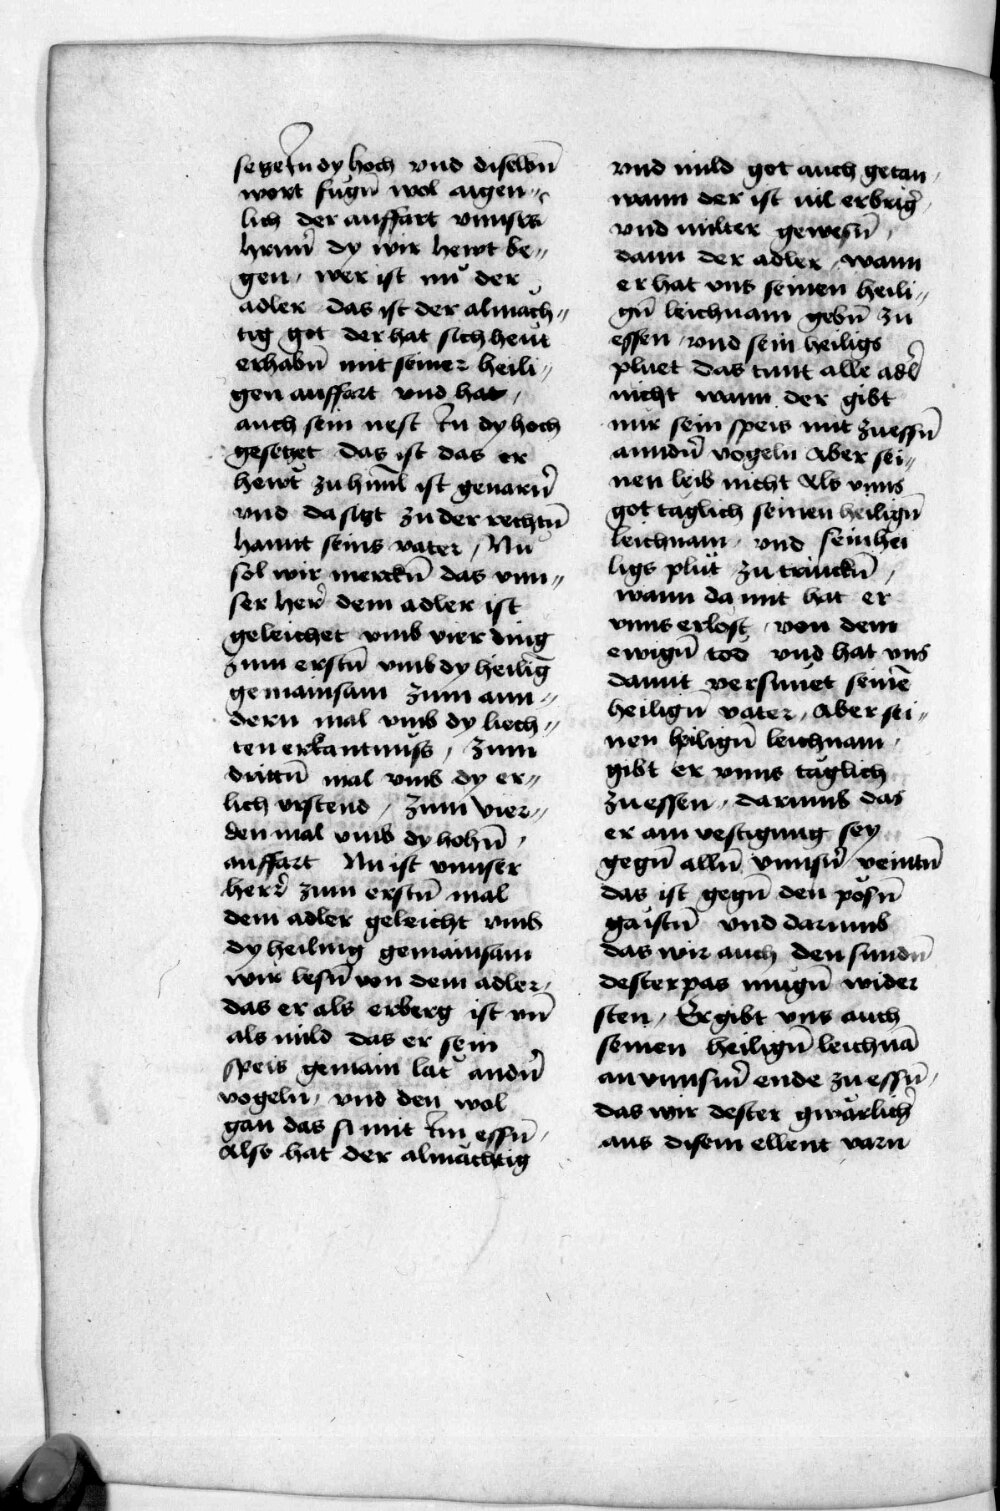 seczen in dy hoch vnd diselbñ
wort fugñ wol aigen〃
lich der auffart vnnsers
hrnñ dy wir hewt be〃
gen / wer ist nu der
adler das ist der almach〃
tig got der hat sich heut
erhabñ mit seiner heili〃
gen auffart vnd hat /
auch sein nest in dy hoch
gesetzet das ist das er
hewt zu himl ist geuarñ
vnd da sitzt zu der rechtñ
hannt seins vater / Nu
sol wir merckñ das vnn〃
ser her dem adler ist
geleichet vmb vier ding
zum erstñ vmb dy heilig
gemainsam zum ann〃
dern mal vmb dy liech〃
ten erkantnuss / zum
drittñ mal vmb dy er〃
lich vrstend / zum vier〃
den mal vmb dy hohñ /
auffart Nu ist vnnser
herr zum erstñ mal
dem adler geleicht vmb
dy heiling gemainsam
wir lesñ von dem adler /
das er als erberg ist vñ
als mild das er sein
speis gemain lat andñ
vogeln / vnd den wol
gan das si mit im essñ /
Also hat der almachtig
vnd mild got auch getan /
wann der ist vil erbriger
vnd milter gewesñ /
dann der adler / wann
er hat vns seinen heili〃
gñ leichnam gebñ zu
essen / vnd sein heiligs
pluet das tunt alle adler
nicht wann der gibt
nur sein speis mit zu essñ
anndñ vogeln Aber sei〃
nen leib nicht Als vnns
got taglich seinen heiligñ
leichnam / vnd sein hei
ligs plut zu trinckñ /
wann da mit hat er
vnns erlost / von dem
ewigñ tod vnd hat vns
damit versunet seinē
heiligñ vater / Aber sei〃
nen heiligñ leichnam /
gibt er vnns taglich
zu essen / darumb das
er ain vestigung sey
gegñ allñ vnnsñ veintñ
das ist gegñ den posñ
gaistñ vnd darumb
das wir auch den sundñ
dester pas mugñ wider
sten / Er gibt vns auch
seinen heiligñ leichnā
an vnnsm ende zu essñ /
das wir dester gwarlich
aus disem ellent varn